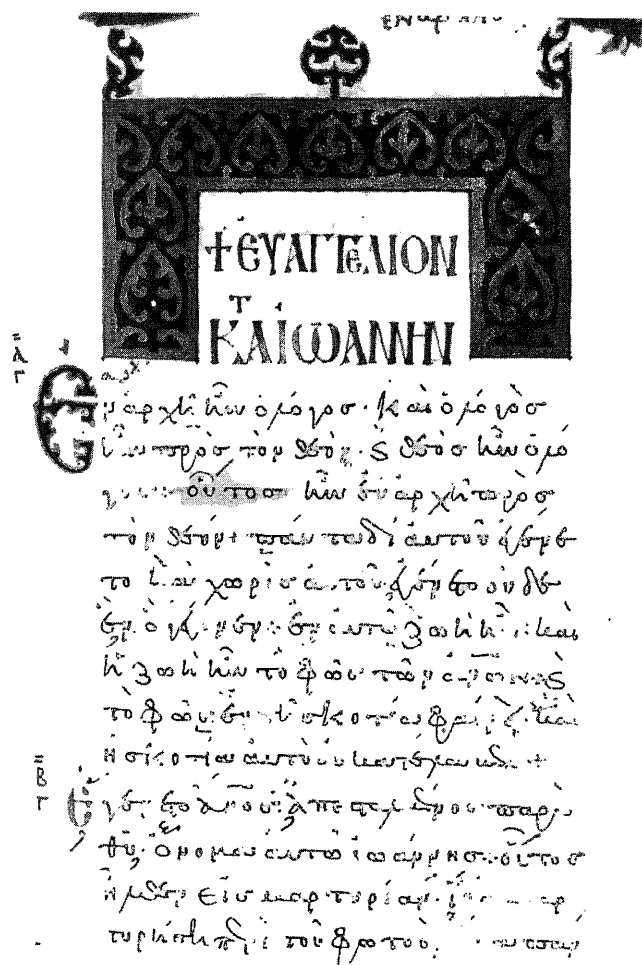 + ΕΥΑΓΓΕΛΙΟΝ
Κ̅Τ ΑΪΩΑΝΝΗΝ
Α
Γ
Ἐν ἀρχῆ ἦν ὁ λόγοσ· καὶ ὁ λόγοσ
ἦν πρὸσ τὸν θεόν· ϗ θεὸσ ἦν ὁ λό
γοσ οὗτοσ ἦν ἐν ἀρχῆ πρὸσ
τὸν θεόν· πάντα δι αὐτοῦ ἐγένε
το καὶ χωρὶσ αὐτοῦ ἐγένετο οὐδὲ
ἓν ὃ γέγονεν· ἐν αὐτῶ ζωὴ ἦν· καὶ
ἡ ζωὴ ἦν τὸ φῶσ τῶν ἀν̅ω̅ν καὶ
τὸ φῶσ ἐν τῆ σκοτία φαίνει καὶ
ἡ σκοτία αὐτὸ οὐ κατέλαβεν +
Β
Γ
Ἐγένετο ἀν̅ο̅σ ἀπεσταλμένοσ παρὰ
θ̅υ̅· ὄνομα αὐτῶ ἰωάννησ· οὗτοσ
ἦλθεν εἰσ μαρτυρίαν· ἵνα μαρ
τυρήση περὶ τοῦ φωτόσ·